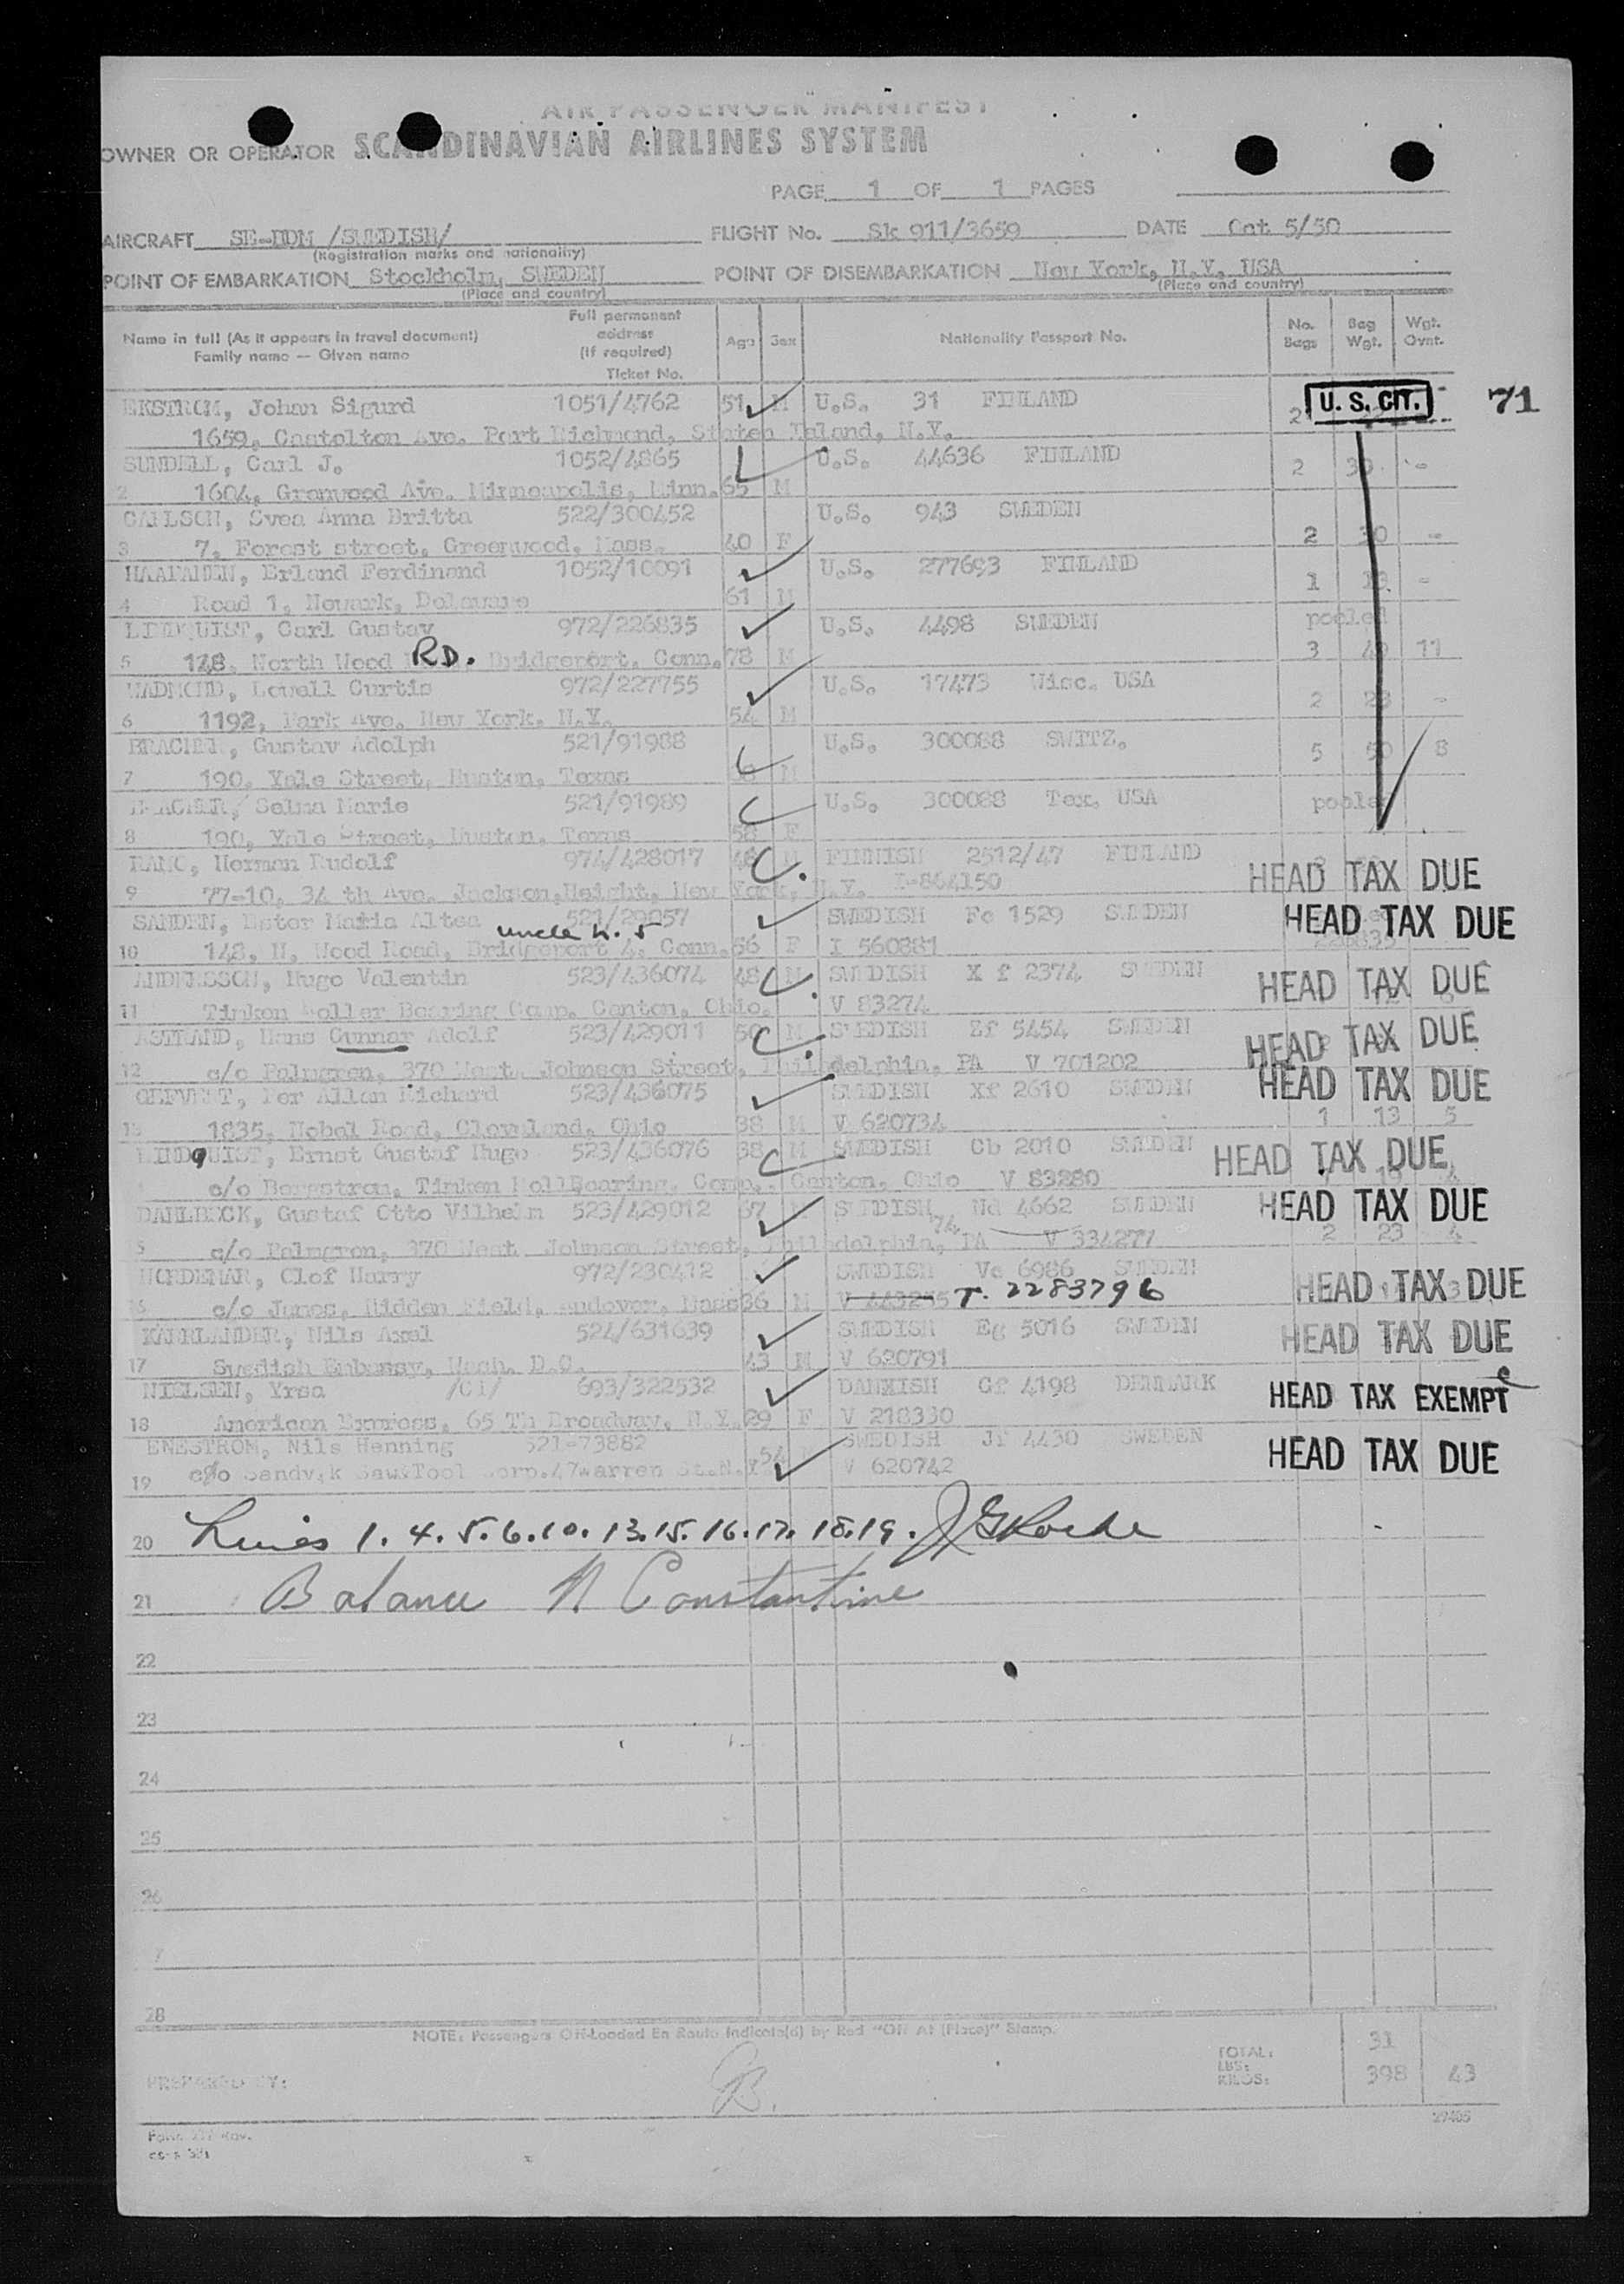 AIR PASSENGER MANIFEST
OWNER OR OPERATOR SCANDINAVIAN AIRLINES SYSTEM
PAGE 1 OF 1 PAGES
AIRCRAFT SE-BDM /SWEDISH/ FLIGHT No. Sk 911/3659 DATE Oct 5/50
(Registration marks and nationality)
POINT OF EMBARKATION Stockholm, SWEDEN POINT OF DISEMBARKATION New York, N.Y. USA
(Place and country) (Place and country)
Name in full (As it appears in travel document) Family name — Given name Full permanent address (If required) Ticket No. Age Sex Nationality Passport No. No. Bags Bag Wgt. Wgt. Ovnt.
EKSTROM, Johan Sigurd 1051/4762 51 M U.S. 31 FINLAND 2 U. S. CIT. 71
1659, Castelton Ave. Port Richmond, Staten Island, N.Y.
SUNDELL, Carl J. 1052/4865 U.S. 44636 FINLAND 2 -
2 1604, Grenwood Ave. Minneapolis, Minn. 65 M
CARLSON, Svea Anna Britta 522/300452 U.S. 943 SWEDEN
3 7, Forest street, Greenwood, Mass. 40 F 2 -
HAAPANEN, Erland Ferdinand 1052/10091 U.S. 277693 FINLAND
4 Road 1, Newark, Delaware 61 M 1 -
LINDQUIST, Carl Gustav 972/226835 U.S. 4498 SWEDEN pooled
5 148, North Wood RD. Bridgeport, Conn. 78 M 3 11
WADMOND, Lowell Curtis 972/227755 U.S. 17473 Wisc. USA
6 1192, Park Ave. New York, N.Y. 54 M 2 -
BRACHER, Gustav Adolph 521/91988 U.S. 300088 SWITZ. 5 8
7 190, Yale Street, Huston, Texas M
BRACHER, Selma Marie 521/91989 U.S. 300088 Tex. USA pooled
8 190, Yale Street, Huston, Texas 58 F
RAMO, Herman Rudolf 974/428017 M FINNISH 2512/47 FINLAND HEAD TAX DUE
9 77-10, 34 th Ave. Jackson, Height, New York, N.Y. I-864150
SANDEN, Ester Maria Altea 521/29057 SWEDISH Fc 1529 SWEDEN HEAD TAX DUE
uncle L. 5
10 148, N. Wood Road, Bridgeport 4, Conn. 56 F I 560881
ANDERSSON, Hugo Valentin 523/436074 48 M SWEDISH X f 2374 SWEDEN HEAD TAX DUE
11 Timken Roller Bearing Comp. Canton, Ohio. V 83274
ASTRAND, Hans Gunnar Adolf 523/429011 50 M SWEDISH Zf 5454 SWEDEN HEAD TAX DUE
12 c/o Palmgren, 370 West Johnson Street, Philadelphia, PA V 701202
Per Allan Richard 523/436075 SWEDISH Xf 2610 SWEDEN HEAD TAX DUE
13 1835, Nobel Road, Cleveland, Ohio 38 M V 620734 1 13 5
LINDQUIST, Ernst Gustaf Hugo 523/436076 38 M SWEDISH Cb 2010 SWEDEN HEAD TAX DUE
c/o Bergstrom, Timken RollBearing, Comp. Canton, Ohio V 83280
DAHLBECK, Gustaf Otto Vilhelm 523/429012 M SWEDISH Nd 4662 SWEDEN HEAD TAX DUE
15 c/o Palmgren, 370 West Johnson Street, Philadelphia, PA 74 V 334277 2 23 4
NORDEMAR, Olof Harry 972/230412 SWEDISH Vc 6986 SWEDEN HEAD TAX DUE
16 c/o Jones, Hidden Field, Andover, Mass 36 M T. 2283796
KARRLANDER, Nils Axel 524/631639 SWEDISH Eg 5016 SWEDEN HEAD TAX DUE
17 Swedish Embassy, Wash. D.C. 43 M V 620791
NIELSEN, Yrsa /CI/ 693/322532 DANNISH Gf 4198 DENMARK HEAD TAX EXEMPT
18 American Express, 65 Th Broadway, N.Y. 29 F V 218330
ENESTROM, Nils Henning 521-73882 54 SWEDISH Jf 4430 SWEDEN HEAD TAX DUE
19 c/o Sandvik Saw&Tool Corp.47Warren St.N.Y V 620742
20 Lines 1. 4. 5. 6. 10. 13. 15. 16. 17. 18. 19.
21 Balance N Constantine
22
23
24
25
26
7
28
NOTE: Passengers Off-Loaded En Route Indicate(d) by Red "Off At (Place)" Stamp.
TOTAL: 31
LBS:
KILOS: 398 43
PREPARED BY: B.
29405
Form 217 Rev.